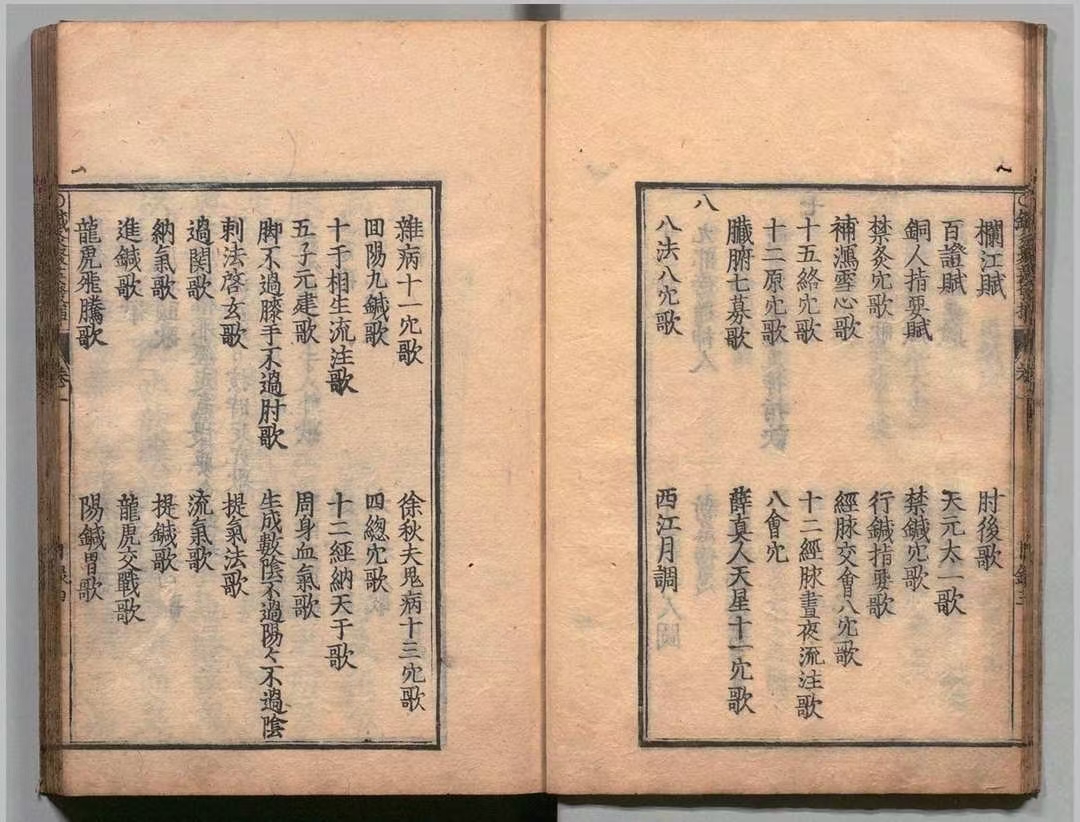 欄江賦 肘後歌
百證賦 天元太一歌
銅人指要賦 禁鍼穴歌
禁灸穴歌 行鍼指要歌
補瀉雪心歌 經脉交會八穴歌
十五絡穴歌 十二經脉晝夜流注歌
十二原穴歌 八會穴
臟腑七募歌 薛真人天星十一穴歌
八
八法八穴歌 西江月調
雜病十一穴歌 徐秋夫鬼病十三穴歌
回陽九鍼歌 四總穴歌
十干相生流注歌 十二經納天干歌
五子元建歌 周身血氣歌
脚不過膝手不過肘歌 生成數陰不過陽々不過陰
刺法啓玄歌 提氣法歌
過関歌 流氣歌
納氣歌 提鍼歌
進鍼歌 龍虎交戰歌
龍虎飛騰歌 陽鍼胃歌
卷一